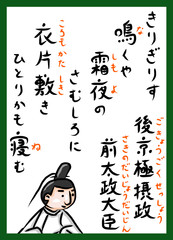 きりぎりす
鳴くや
霜夜の
さむしろに
衣片敷き
ひとりかも寝む
後京極摂政
前太政大臣
な
しも よ
ころもかた しき
ね
ごきょうごくせっしょう
さきのだいじょうだいじん